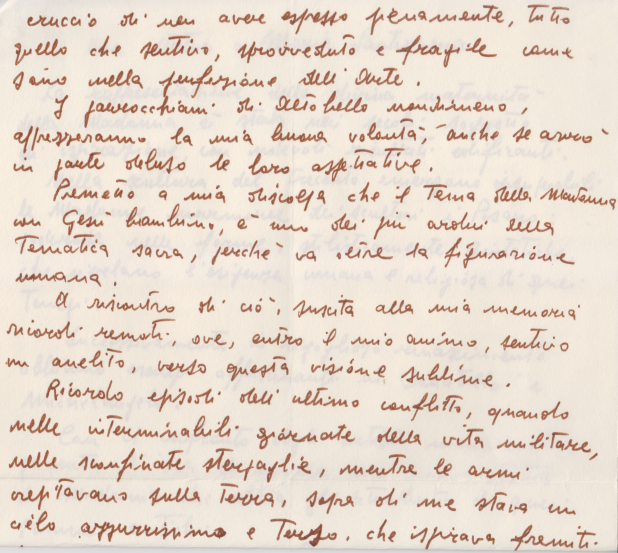 cruccio di non avere espresso pienamente, tutto
quello che sentivo, sprovveduto e fragile come
sono nella perfezione dell'Arte.
I parrocchiani di Altobello nondimeno,
apprezzeranno la mia buona volontà, anche se avrò
in parte deluso le loro aspettative.
Premetto a mia discolpa che il Tema della Madonna
con Gesù bambino, è uno dei più ardui della
Tematica sacra, perchè va oltre la figurazione
umana.
A riscontro di ciò, suscita alla mia memoria
ricordi remoti, ove, entro il mio animo, sentivo
un anelito, verso questa visione sublime.
Ricordo episodi dell'ultimo conflitto, quando
nelle interminabili giornate della vita militare,
nelle sconfinate sterpaglie, mentre le armi
crepitavano sulla Terra, sopra di me stava un
cielo azzurrissimo e Terso, che ispirava fremiti.